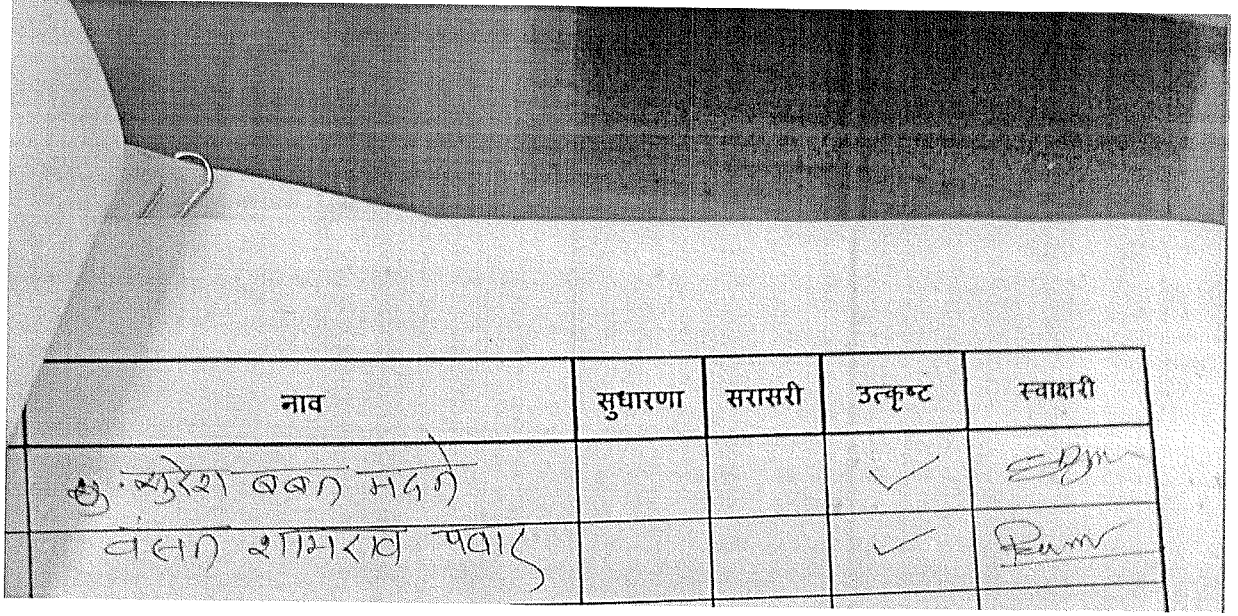 नाव सुधारणा सरासरी उत्कृष्ट स्वाक्षरी
सुरेश बबन मदने ✓
वंसत शामराव पवार ✓